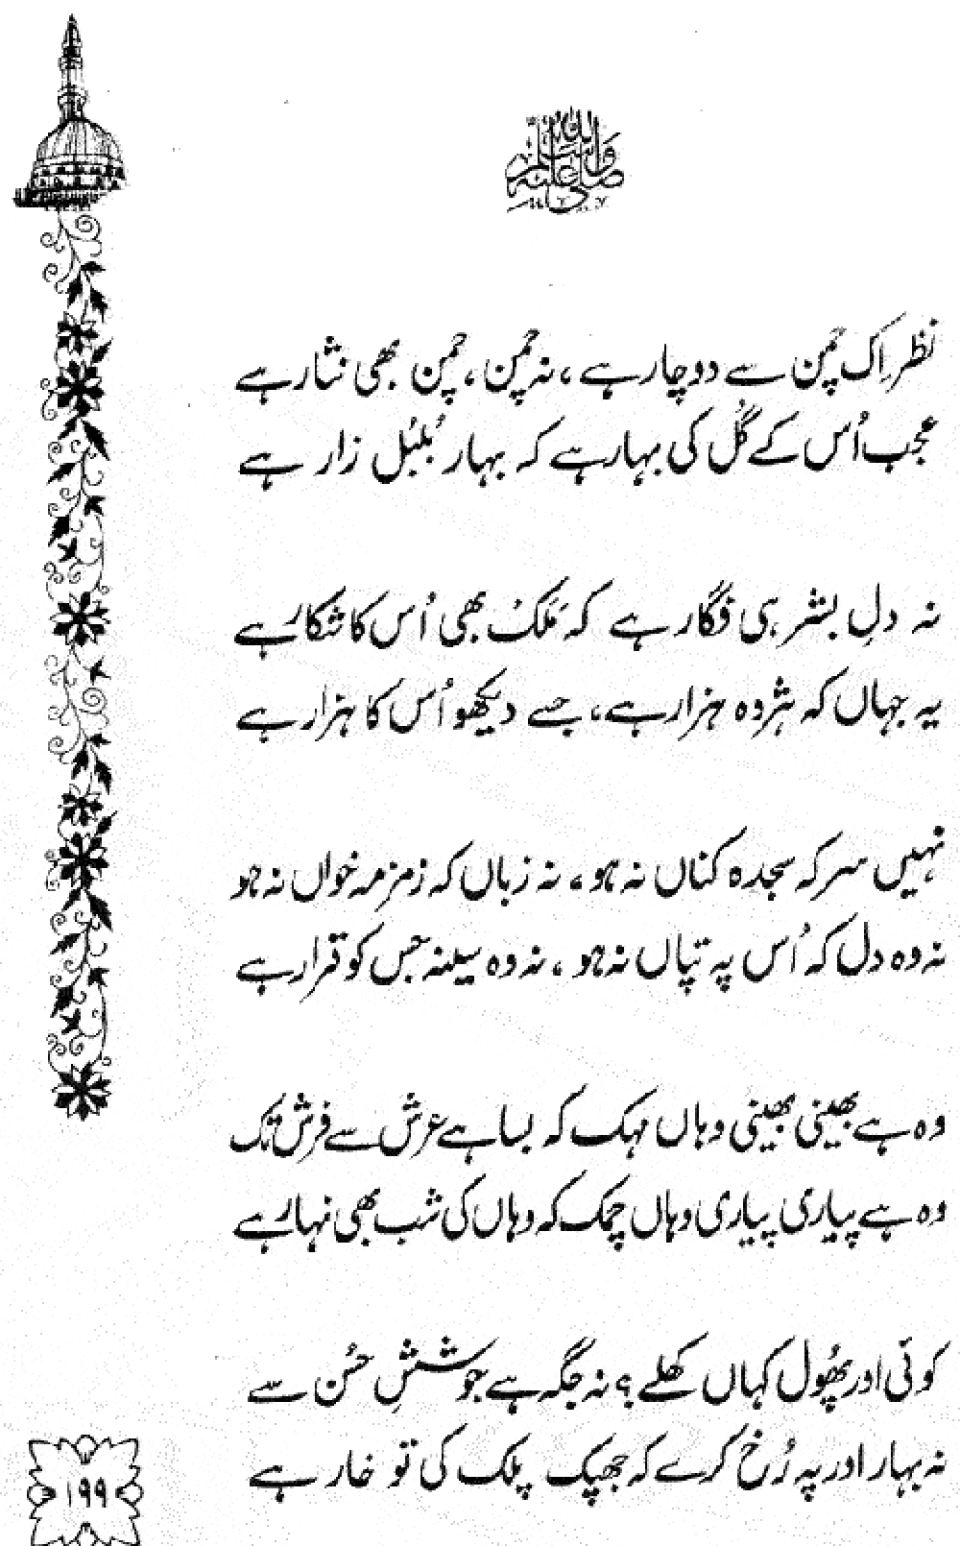 صلی اللہ علیہ وسلم
نظر اِک چمن سے دوچار ہے ، نہ چمن ، چمن بھی نثار ہے
عجب اُس کے گُل کی بہار ہے کہ بہار بُلبُل زار ہے
نہ دلِ بشر ہی فگار ہے کہ مَلَک بھی اُس کا شکار ہے
یہ جہاں کہ ہژدہ ہزار ہے، جسے دیکھو اُس کا ہزار ہے
نہیں سر کہ سجدہ کناں نہ ہو ، نہ زباں کہ زمزمہ خواں نہ ہو
نہ وہ دل کہ اُس پہ تپاں نہ ہو ، نہ وہ سینہ جس کو قرار ہے
وہ ہے بھینی بھینی وہاں مہک کہ بسا ہے عرش سے فرش تک
وہ ہے پیاری پیاری وہاں چمک کہ وہاں کی شب بھی نہار ہے
کوئی اور پھُول کہاں کھلے ؟ نہ جگہ ہے جوششِ حُسن سے
نہ بہار اور پہ رُخ کرے کہ جھپک پلک کی تو خار ہے
۱۹۹